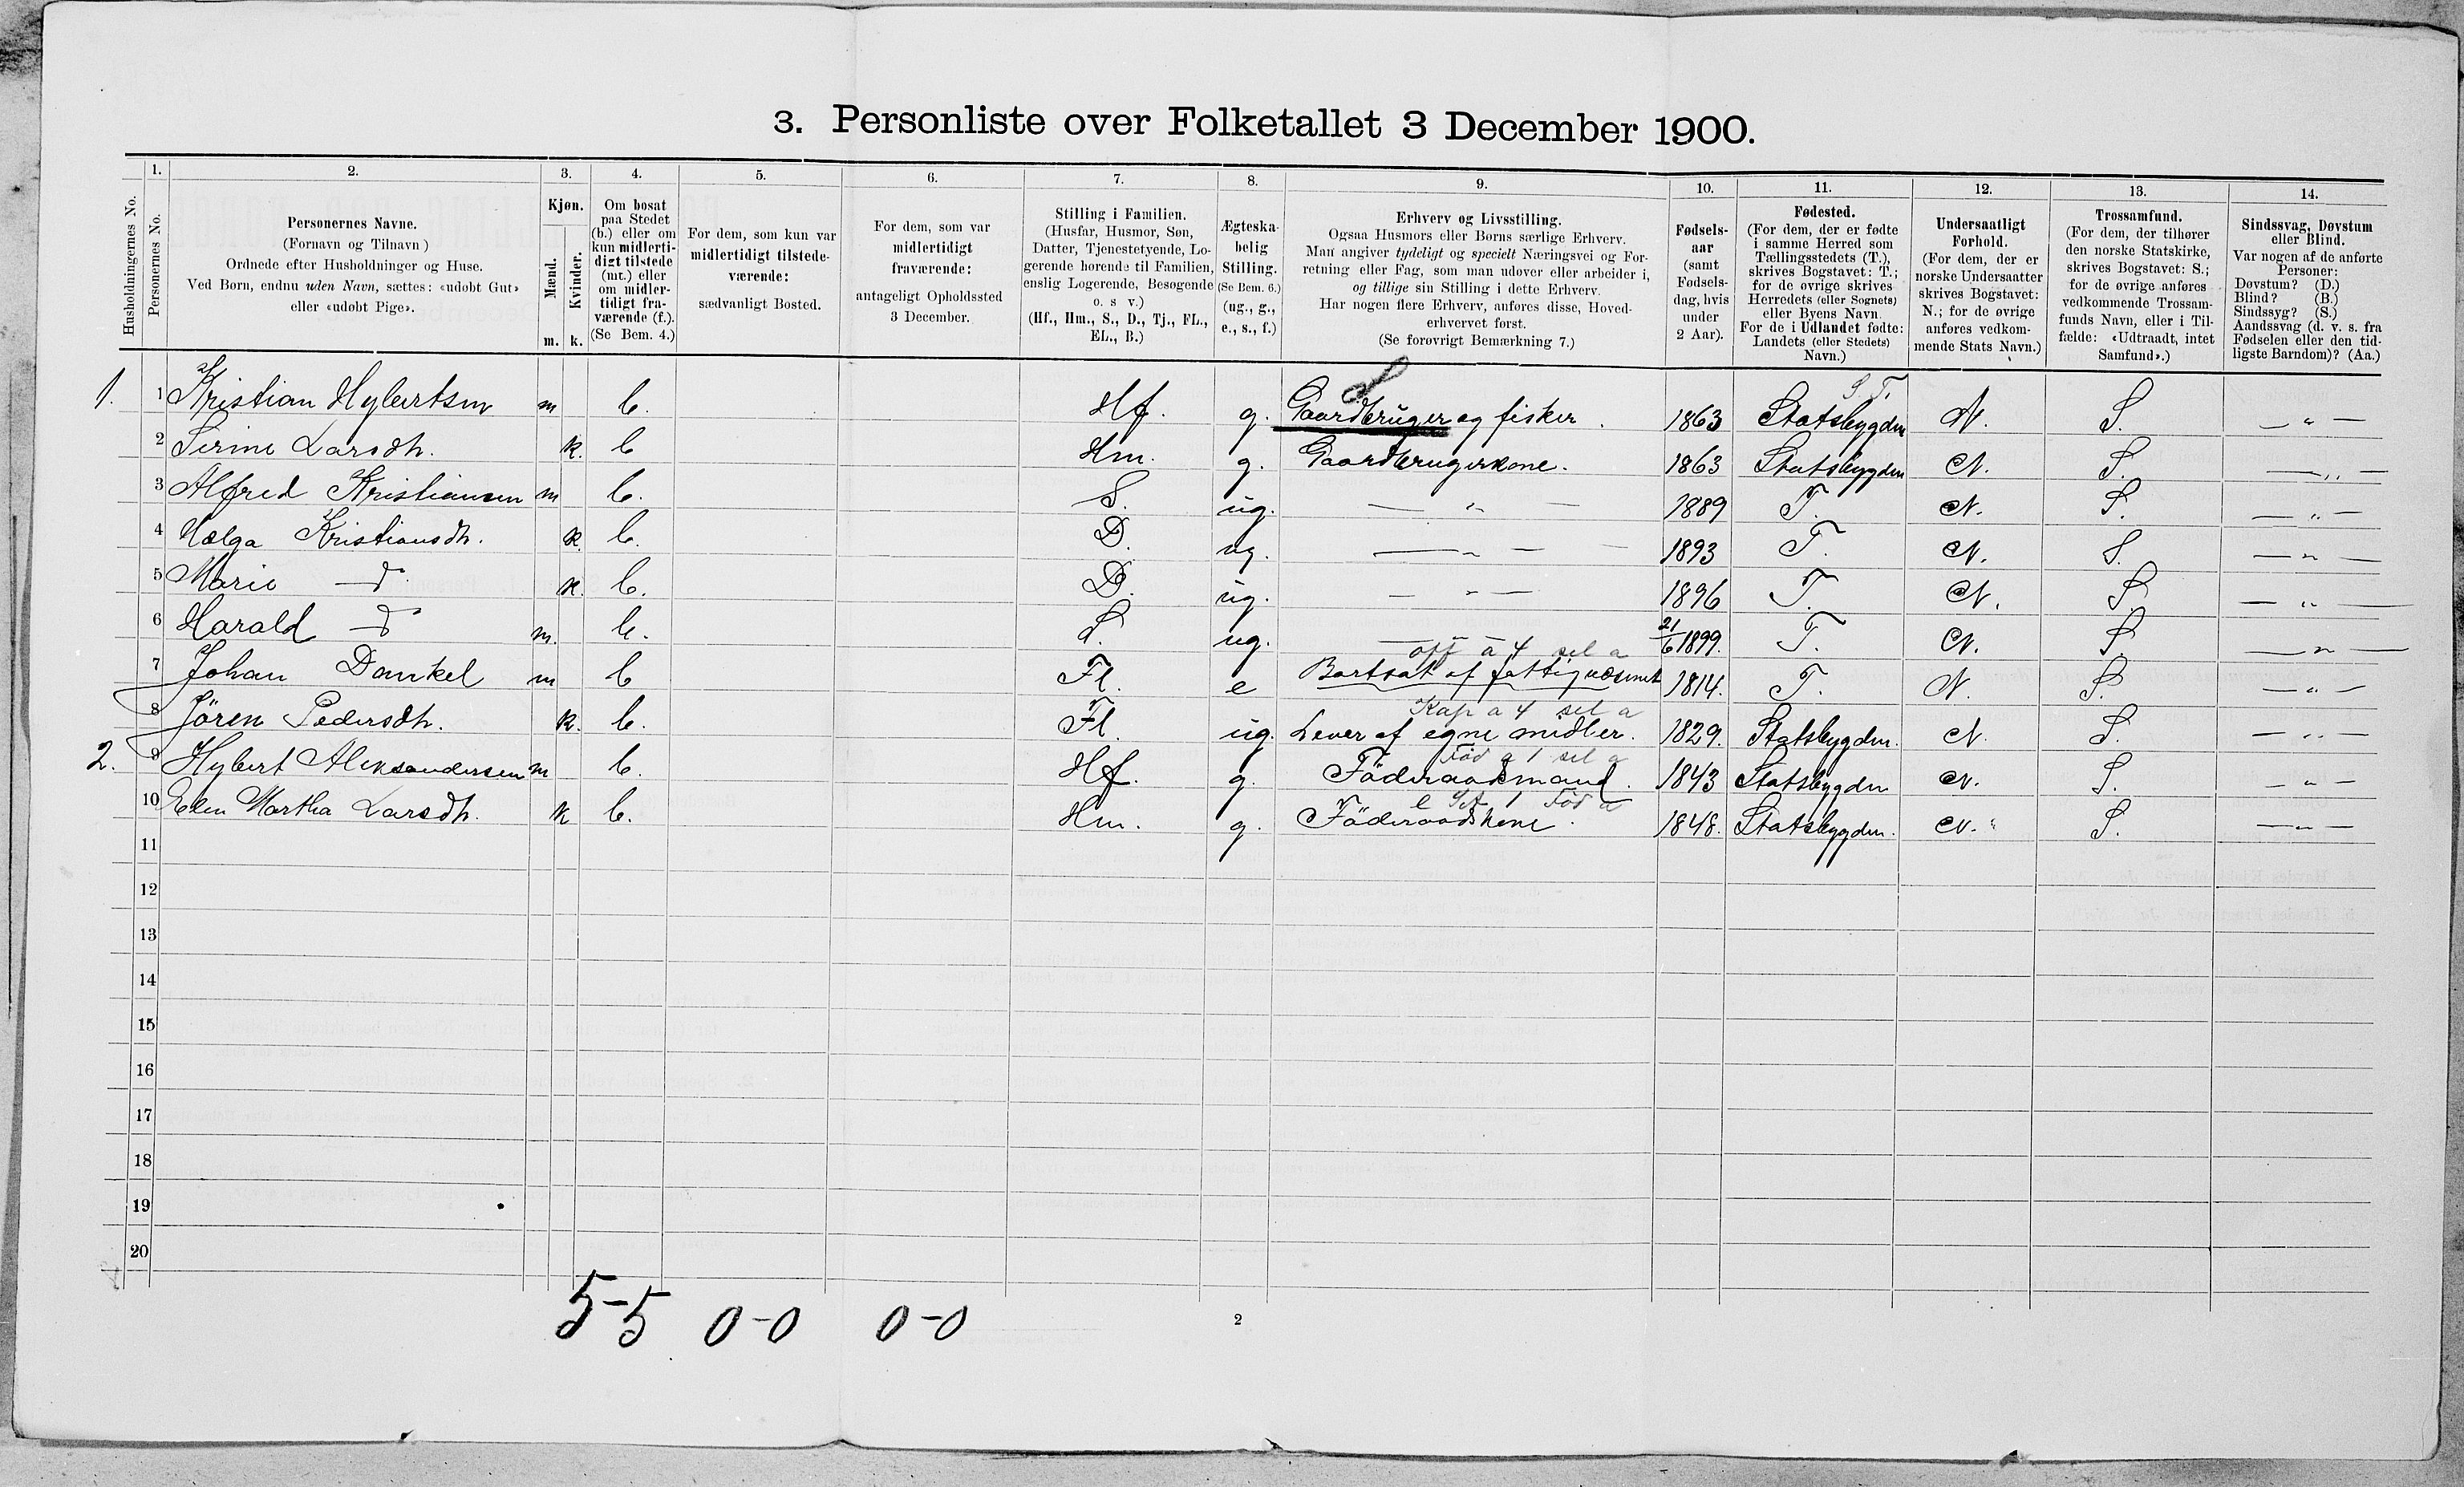 3. Personliste over Folketallet 3 December 1900.
Husholdningernes No.
1.
Personernes No.
2.
Personernes Navne.
(Fornavn og Tilnavn)
Ordnede efter Husholdninger og Huse.
Ved Børn, endnu uden Navn, sættes: «udøbt Gut»
eller «udøbt Pige».
3.
Kjøn.
Mænd.
Kvinder.
m. k.
4.
Om bosat
paa Stedet
(b.) eller om
kun midlerti-
digt tilstede
(mt.) eller
om midler-
tidigt fra-
værende (f.).
(Se Bem. 4.)
5.
For dem, som kun var
midlertidigt tilstede-
værende:
sædvanligt Bosted.
6.
For dem, som var
midlertidigt
fraværende:
antageligt Opholdssted
3 December.
7.
Stilling i Familien.
(Husfar, Husmor, Søn,
Datter, Tjenestetyende, Lo-
gerende hørende til Familien,
enslig Logerende, Besøgende
o. s v.)
(Hf., Hm., S., D., Tj., FL.,
EL., B.)
8.
Ægteska-
belig
Stilling.
(Se Bem. 6.)
(ug., g.,
e., s., f.)
9.
Erhverv og Livsstilling.
Ogsaa Husmors eller Børns særlige Erhverv.
Man angiver tydeligt og specielt Næringsvei og For-
retning eller Fag, som man udøver eller arbeider i,
og tillige sin Stilling i dette Erhverv.
Har nogen flere Erhverv, anføres disse, Hoved-
erhvervet først.
(Se forøvrigt Bemærkning 7.)
10.
Fødsels-
aar
(samt
Fødsels-
dag, hvis
under
2 Aar).
11.
Fødested.
(For dem, der er fødte
i samme Herred som
Tællingsstedets (T.),
skrives Bogstavet: T.;
for de øvrige skrives
Herredets (eller Sognets)
eller Byens Navn.
For de i Udlandet fødte:
Landets (eller Stedets)
Navn.)
12.
Undersaatligt
Forhold.
(For dem, der er
norske Undersaatter
skrives Bogstavet:
N.; for de øvrige
anføres vedkom-
mende Stats Navn.)
13.
Trossamfund.
(For dem, der tilhører
den norske Statskirke,
skrives Bogstavet: S.;
for de øvrige anføres
vedkommende Trossam-
funds Navn, eller i Til-
fælde: «Udtraadt, intet
Samfund».)
14.
Sindssvag, Døvstum
eller Blind.
Var nogen af de anførte
Personer:
Døvstum? (D.)
Blind? (B.)
Sindssyg? (S.)
Aandssvag (d. v. s. fra
Fødselen eller den tid-
ligste Barndom)? (Aa.)
S. T.
1. 1 Kristian Hybertsen m b. Hf. g. Gaardbruger og fisker. 1863 Statsbygden N. S. — " —
2 Serine Larsdh. k. b Hm. g. Gaardbrugerkone. 1863 Statsbygden N. S. — " —
3 Alfred Kristiansen m b. S. ug. — " — 1889 T. N. S. — " —
4 Hælga Kristiansdh. k. b. D. ug. — " — 1893 T. N. S. — " —
5 Marie —d— k. b. D. ug. — " — 1896 T. N. S. — " —
6 Harald —d— m. b. S. ug. — " — 21/6 1899. T. N. S. — " —
off a 4 sel a
7 Johan Dankel m b Fl. e Bortsat af fattigvæsenet 1814. T. N. S. — " —
Kap a 4 sel a
8 Jören Pedersdh. k. b. Fl. ug. Lever af egne midler. 1829. Statsbygden. N. S. — " —
Föd a 1 sel a
2. 9 Hybert Aleksandersen m b. Hf. g. Föderaadsmand. 1843 Statsbygden N. S. — " —
Föd a
10 Elen Martha Larsdh. k b. Hm. g. Föderaadskone. 1848. Statsbygden. N. S. — " —
11
12
13
14
15
16
17
18
19
20
5-5 0-0 0-0
2